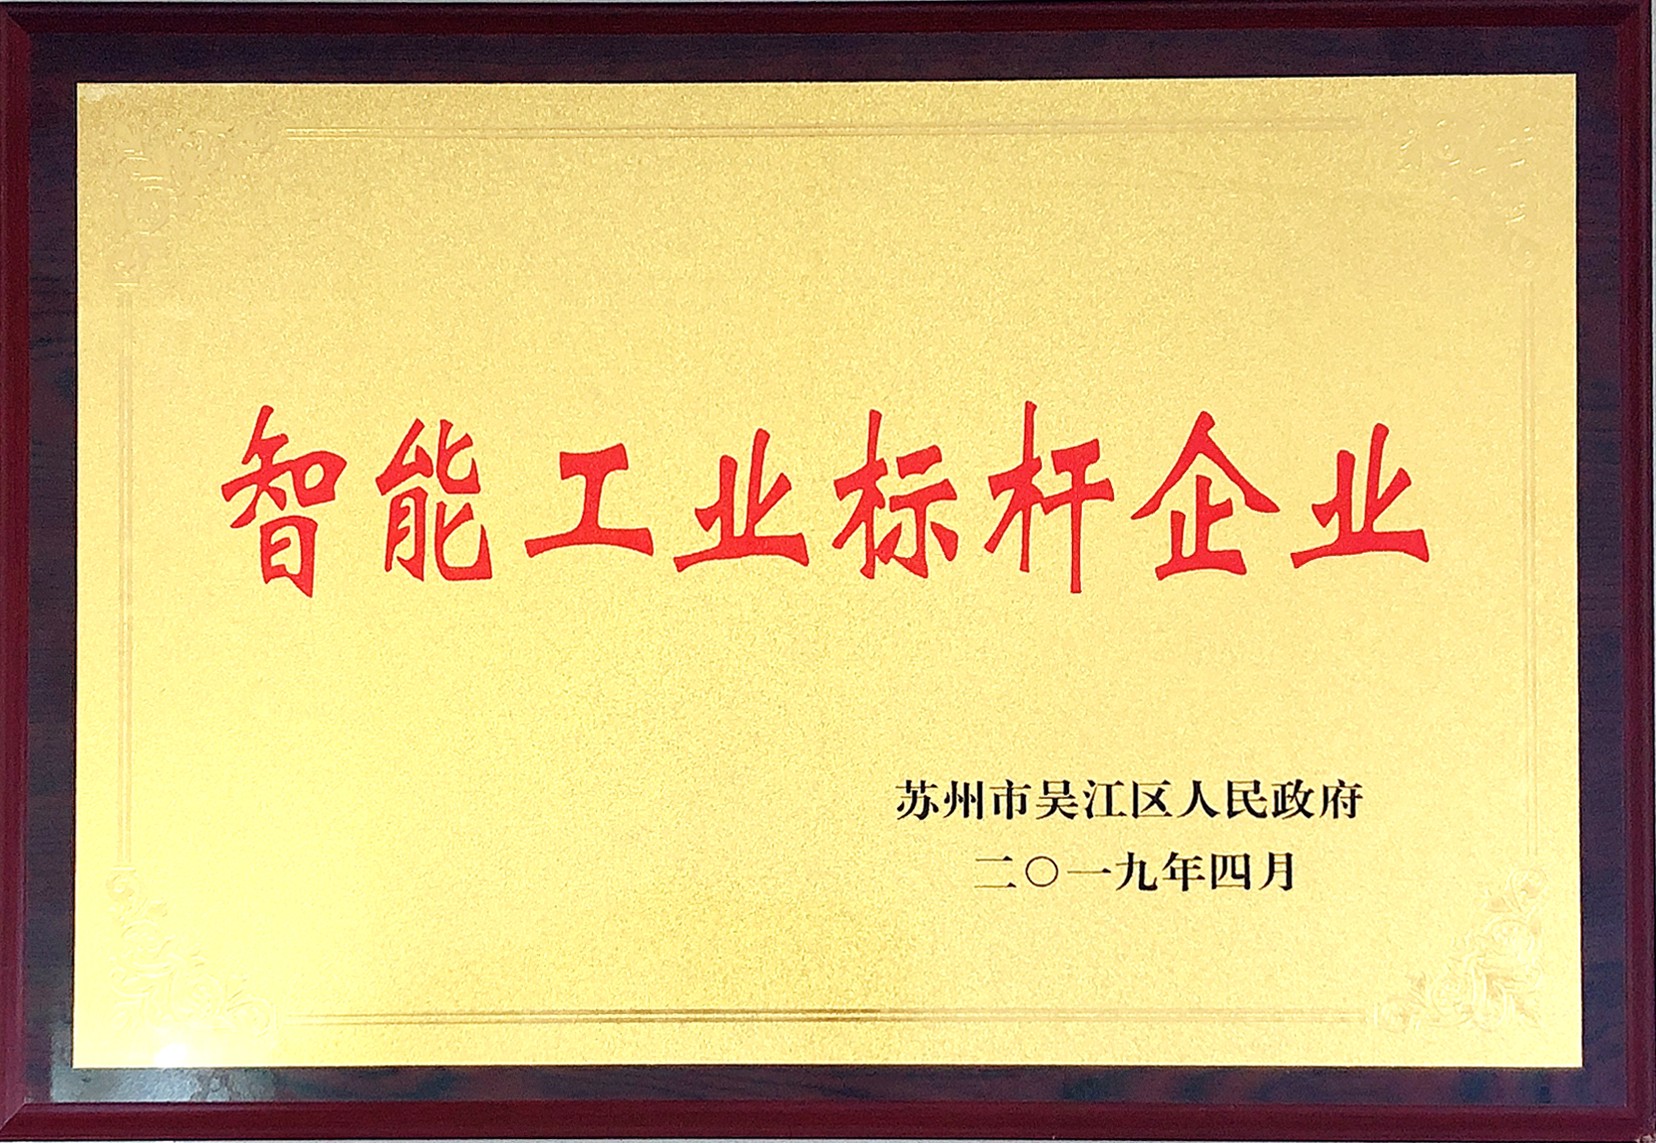 智能工业标杆企业
苏州市吴江区人民政府
二〇一九年四月